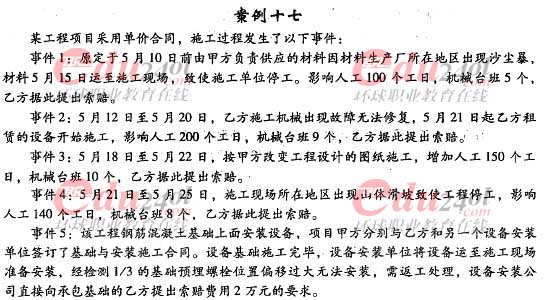 案例十七
某工程项目采用单价合同，施工过程发生了以下事件：
事件1：原定于5月10日前由甲方负责供应的材料因材料生产厂所在地区出现沙尘暴，
材料5月15日运至施工现场，致使施工单位停工。影响人工100个工日，机械台班5个，
乙方据此提出索赔。
事件2：5月12日至5月20日，乙方施工机械出现故障无法修复，5月21日起乙方租
赁的设备开始施工，影响人工200个工日，机械台班9个，乙方据此提出索赔。
事件3：5月18日至5月22日，按甲方改变工程设计的图纸施工，增加人工150个工
日，机械台班10个，乙方据此提出索赔。
事件4：5月21日至5月25日，施工现场所在地区出现山体滑坡致使工程停工，影响
人工140个工日，机械台班8个，乙方据此提出索赔。
事件5：该工程钢筋混凝土基础上面安装设备，项目甲方分别与乙方和另一个设备安装
单位签订了基础与安装施工合同。设备基础施工完毕，设备安装单位将设备运至施工现场
准备安装，经检测1/3的基础预埋螺栓位置偏移过大无法安装，需返工处理，设备安装公
司直接向承包基础的乙方提出索赔费用2万元的要求。